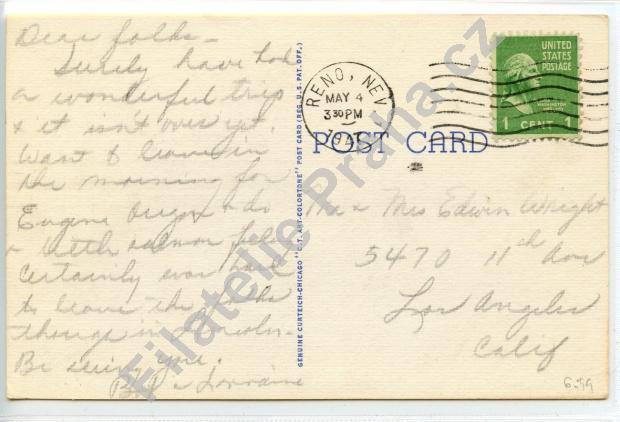 Dear folks –
Surely have had
a wonderful trip
& it isn't over yet.
Want to leave in
the morning for
Eugene Oregon & do
a little salmon
Certainly was hard
to leave the
though in Lincoln –
Be seeing you.
& Lorraine
GENUINE CURTEICH-CHICAGO "C.T. ART-COLORTONE" POST CARD (REG. U.S. PAT. OFF.)
RENO, NEV
MAY 4
3 30 PM
UNITED
STATES
POSTAGE
WASHINGTON
1 CENT 1
POST CARD
Mr & Mrs Edwin Wright
5470 11th Ave
Los Angeles
Calif
6-39
Filatelie Praha.cz